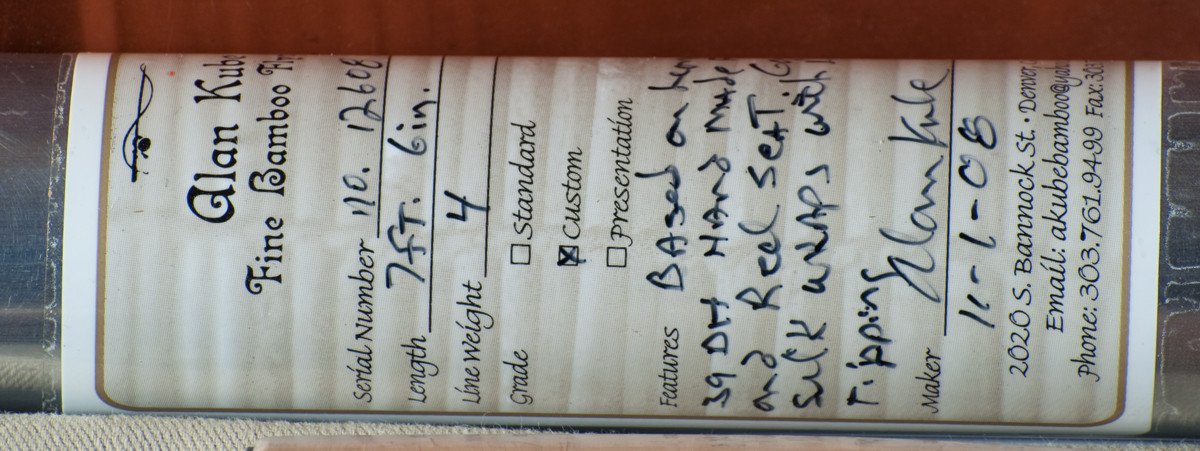 Alan Kube
Fine Bamboo
Serial Number 110. 12608
Length 7FT. 6in.
Line Weight 4
Grade
standard
custom
presentation
Features Based on
39 DH HAND MADE
and Reel SeAT
Silk wraps with
Tipping
Maker Alan Kube
11-1-08
2020 S. Bannock St. · Denver
Email: akubebamboo@
Phone: 303.761.9499 Fax: 303